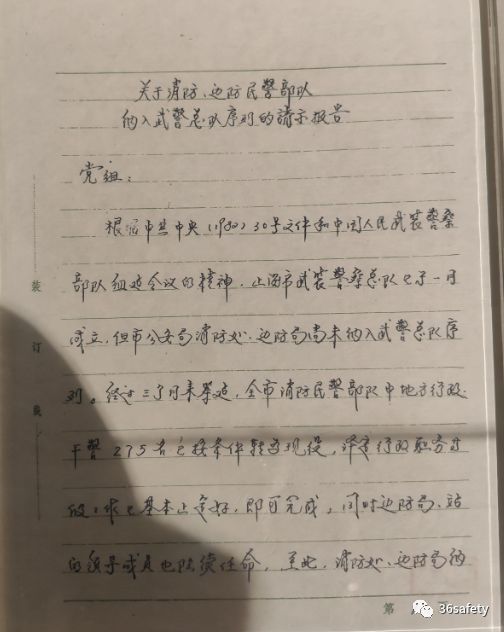 关于消防、边防民警部队
纳入武警总队序列的请示报告
党组：
根据中共中央（1982）30号文件和中国人民武装警察
部队组建会议的精神，上海市武装警察总队已于一月
成立，但市公安局消防处、边防局尚未纳入武警总队序
列。经过三个月来筹建，全市消防民警部队中地方行政
干警275名已按条件转为现役，评定行政职务等
级工作已基本上定好，即可完成，同时边防局、站
的领导成员也陆续任命，至此，消防处、边防局的
装
订
线
第
36safety